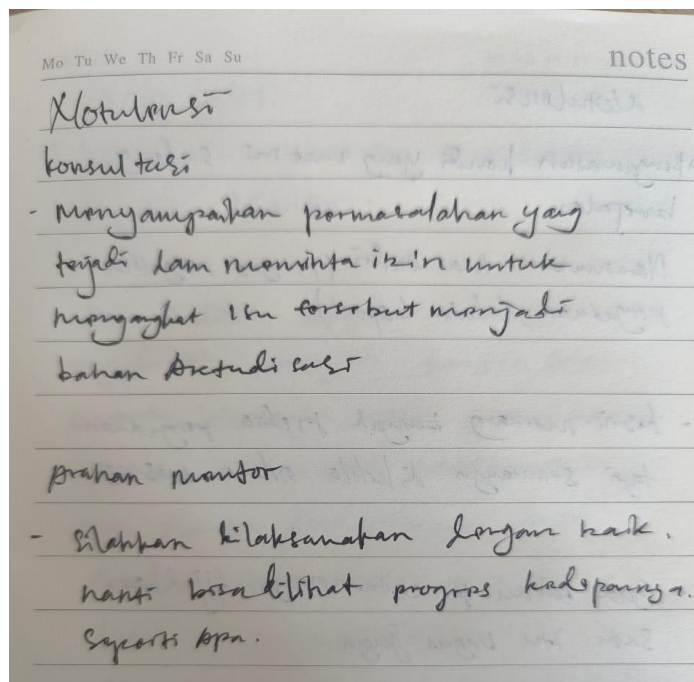 Mo Tu We Th Fr Sa Su
notes
Notulensi
konsultasi
- Menyampaikan permasalahan yang
terjadi dam meminta izin untuk
mengangkat isu tersebut menjadi
bahan Aktualisasi
Arahan mentor
- Silahkan dilaksanakan dengan baik.
nanti bisa dilihat progres kedepannya.
Seperti Apa.